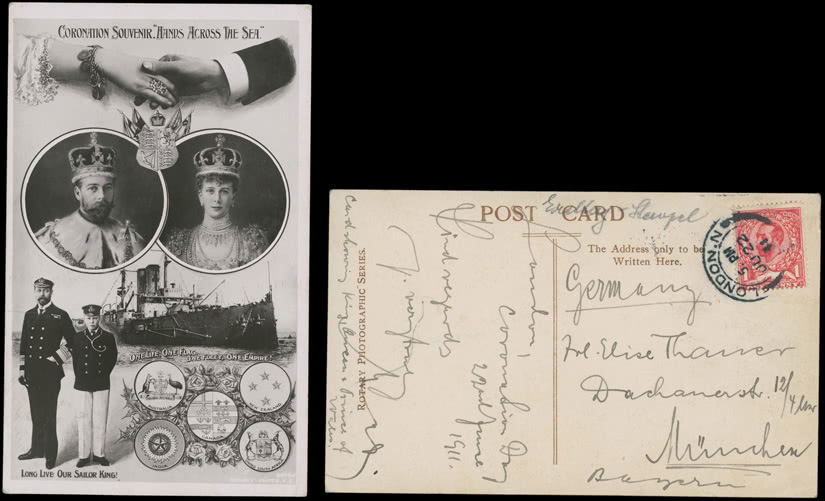 CORONATION SOUVENIR. "HANDS ACROSS THE SEA."
ONE LIFE, ONE FLAG,
ONE FLEET, ONE EMPIRE!
AUSTRALIA
NEW ZEALAND
CANADA
INDIA
SOUTH AFRICA
LONG LIVE OUR SAILOR KING!
POST CARD
Stempel
The Address only to be
Written Here.
LONDON. N.
5 PM
JU 22
11
ROTARY PHOTOGRAPHIC SERIES.
London
Coronation Day
22nd June
1911.
Kind regards
Card showing King, Queen & Prince of
Wales.
Germany
Frl. Elise Thanner
Dachauerstr. 12/
München
Bayern